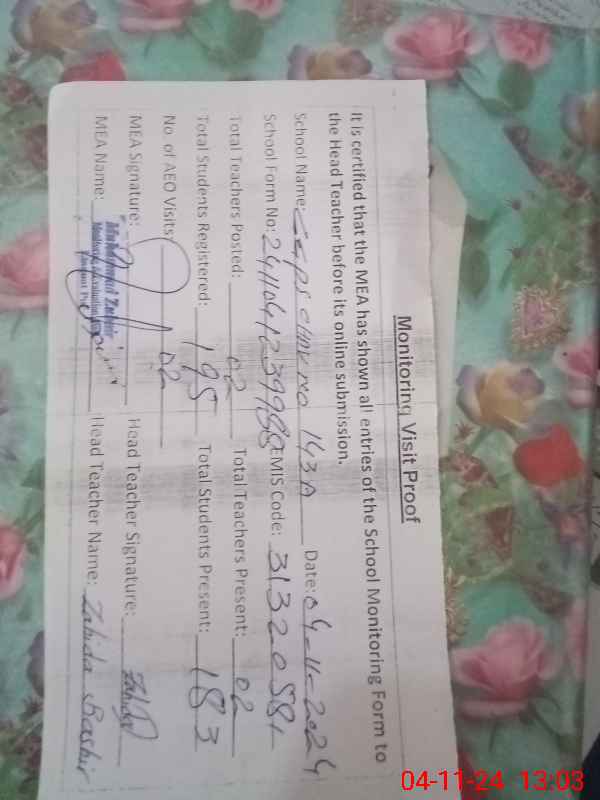 Monitoring Visit Proof
It is certified that the MEA has shown all entries of the School Monitoring Form to
the Head Teacher before its online submission.
School Name: GGPS chak no 143A Date: 04-11-2024
School Form No: EMIS Code: 31320581
Total Teachers Posted: 02 Total Teachers Present: 02
Total Students Registered: 195 Total Students Present: 183
No. of AEO Visits: 02
MEA Signature: Head Teacher Signature: Zahida
MEA Name: Muhammad Head Teacher Name: Zahida Bashir
04-11-24 13:03